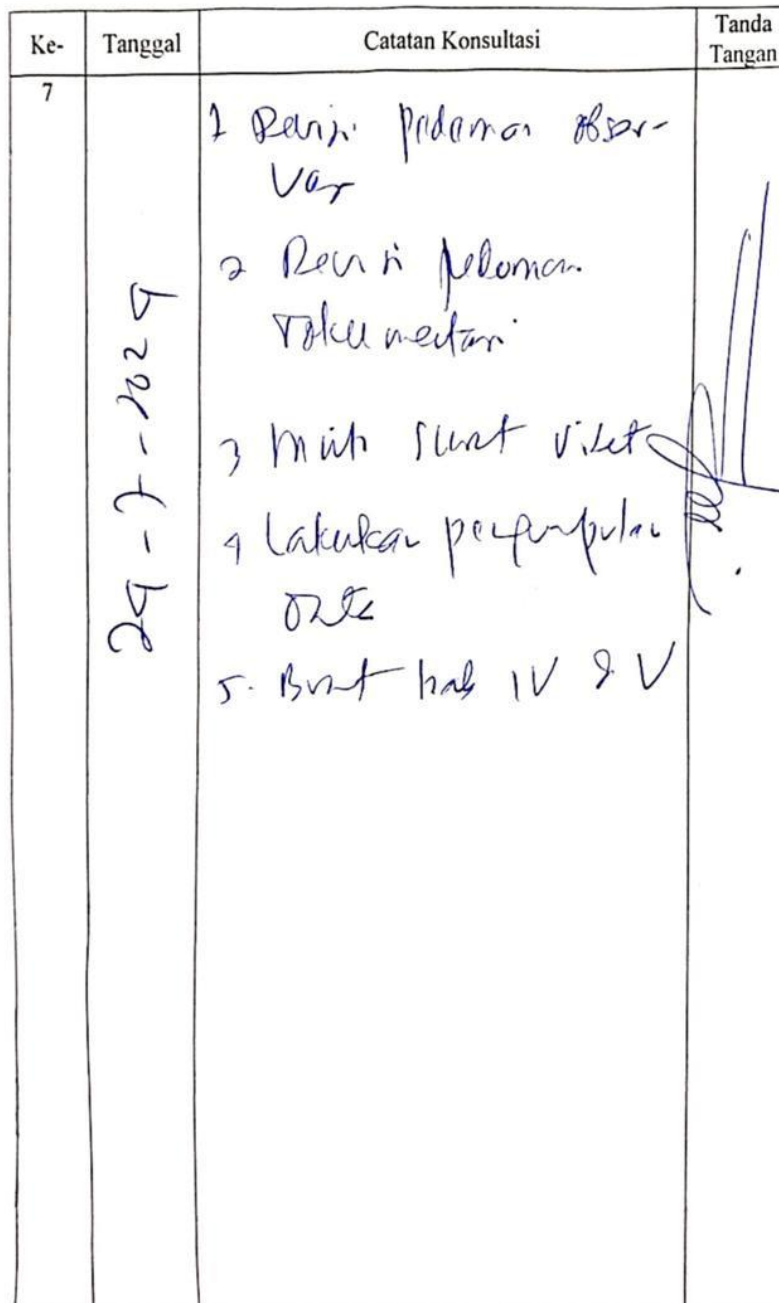 Ke- Tanggal Catatan Konsultasi Tanda Tangan
7
29-7-2024
1 Revisi pedoman obser-
vasi
2 Revisi pedoman
Dokumentasi
3 Minta surat riset
4 Lakukan pengumpulan
Data
5. Buat bab IV & V